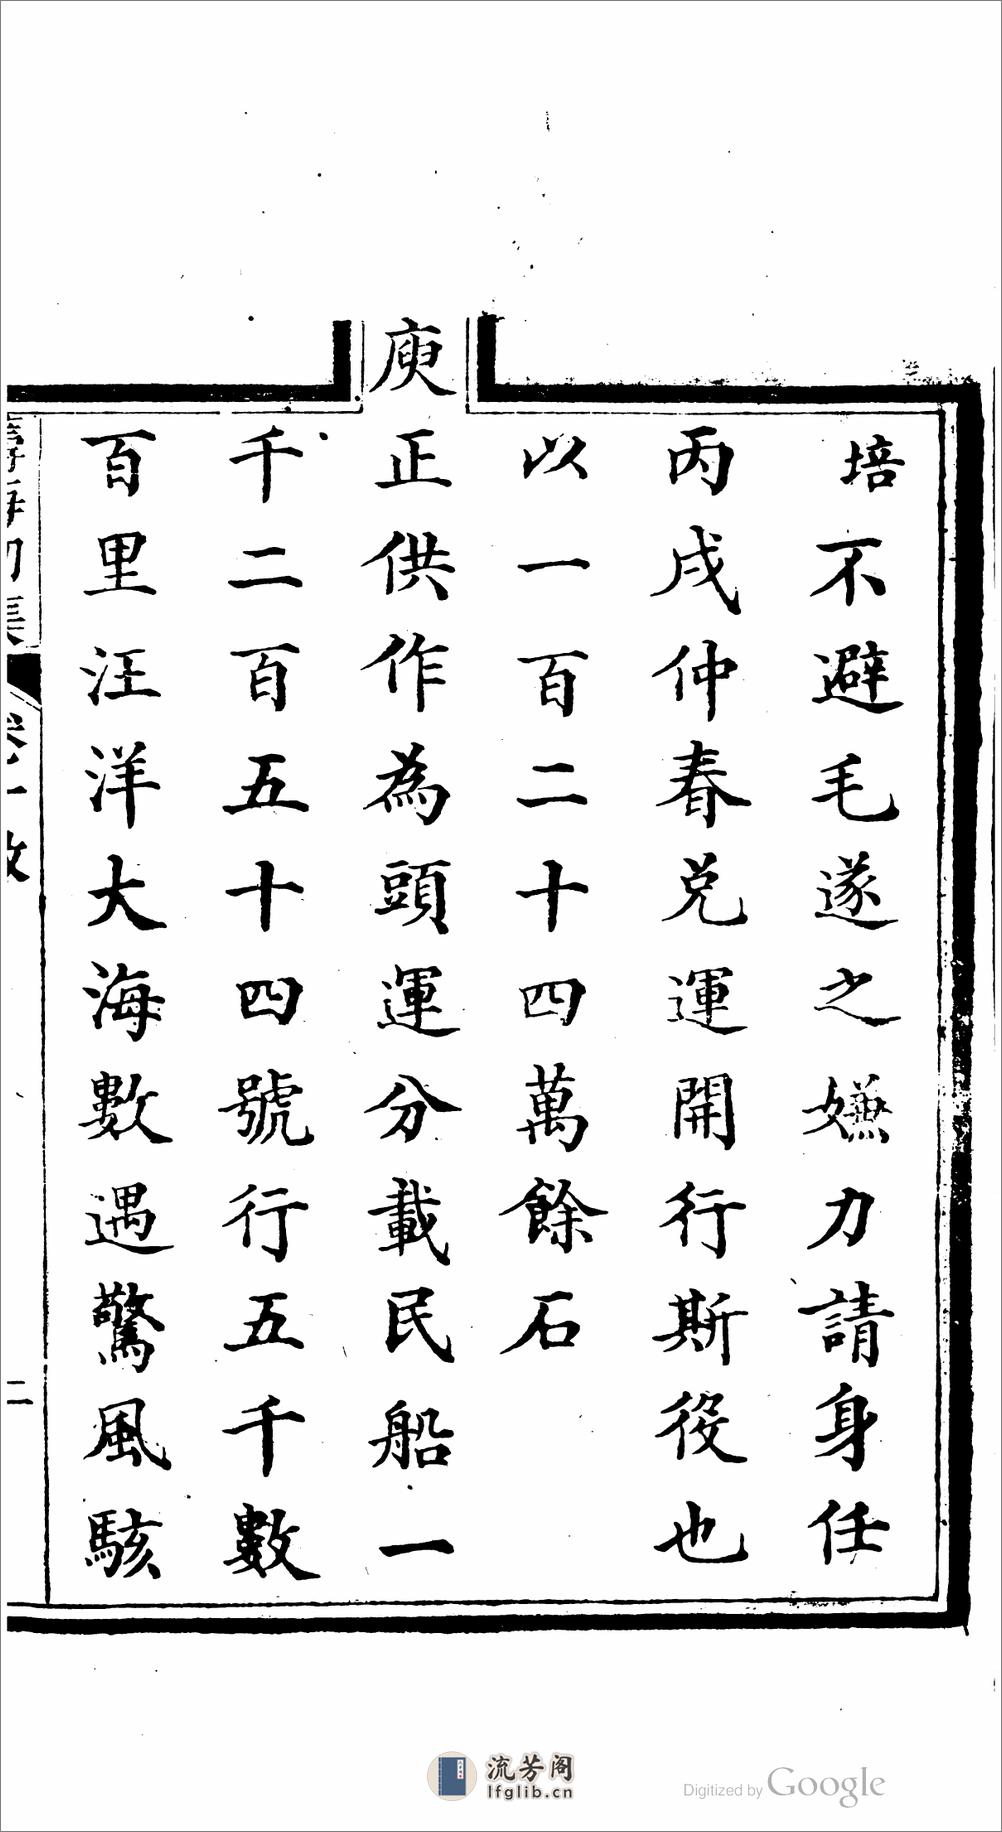 培不避毛遂之嫌力請身任
丙戌仲春兑運開行斯役也
以一百二十四萬餘石
庾正供作為頭運分載民船一
千二百五十四號行五千數
百里汪洋大海數遇驚風駭
二
流芳阁
lfglib.cn
Digitized by Google